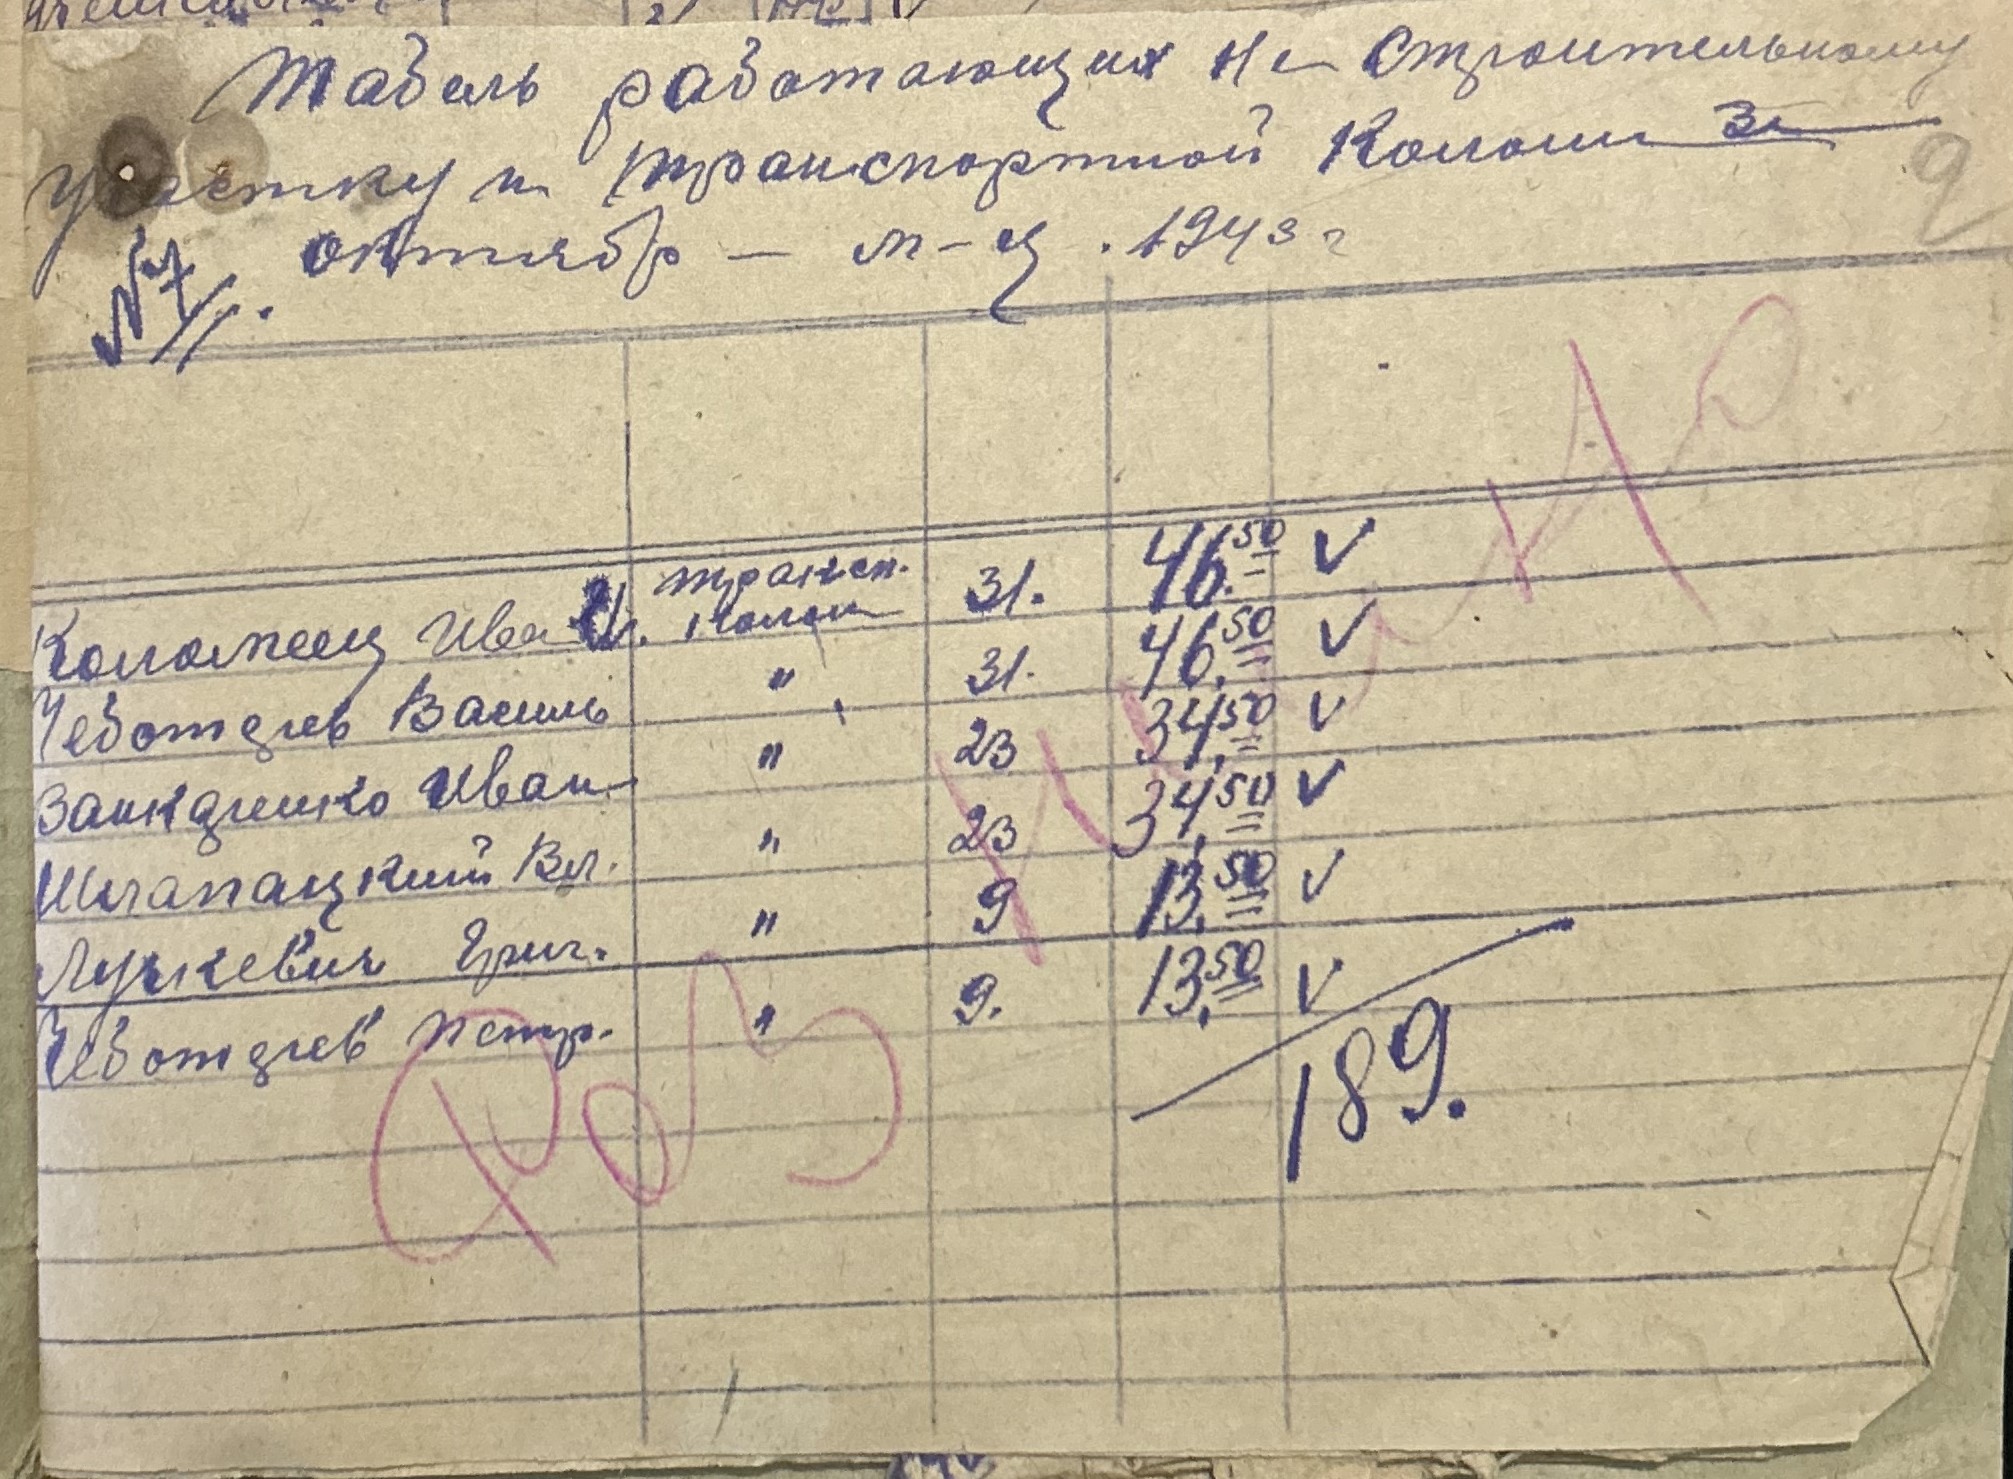 Табель работающих на Строительному
участку и транспортной Колони За
октябр - м-ц. 1943 г
№ 7
Коломеец Иван И. трансп. колон 31. 46.50 V
Чеботарев Василь " 31. 46.50 V
Иван " 23 34,50 V
Шлапацкий Вл. " 23 34,50 V
Лучкевич Григ. " 9 13.50 V
Чеботарев Петр. " 9. 13.50 V
189.